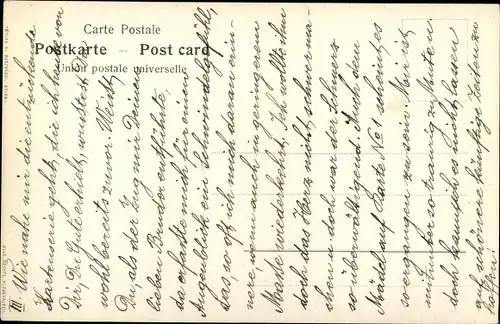 Carte Postale
Postkarte – Post card
Union postale universelle
III. Wie nahe mir die entzückende
Kartenserie geht, die ich heute von
Dir, Du Gute erhielt, wusstest Du
wohl bereits zuvor. Weisst
Du, als der Zug mir Deinen
lieben Bruder entführte,
da erfasste mich für einen
Augenblick ein Schwindelgefühl,
das, so oft ich mich daran erin-
nere, wenn auch in geringerem
Masse wiederkehrt. Ich wollte ihm
doch das Herz nicht schwer ma-
chen u. doch war der Schmerz
so überwältigend. Auch dem
Mädel auf Karte No 1 scheint es
so ergangen zu sein. Mir ist
mitunter so traurig zu Muten
doch kämpfe ich es nicht lassen
auf schönere künftige Zeiten zu
hoffen.